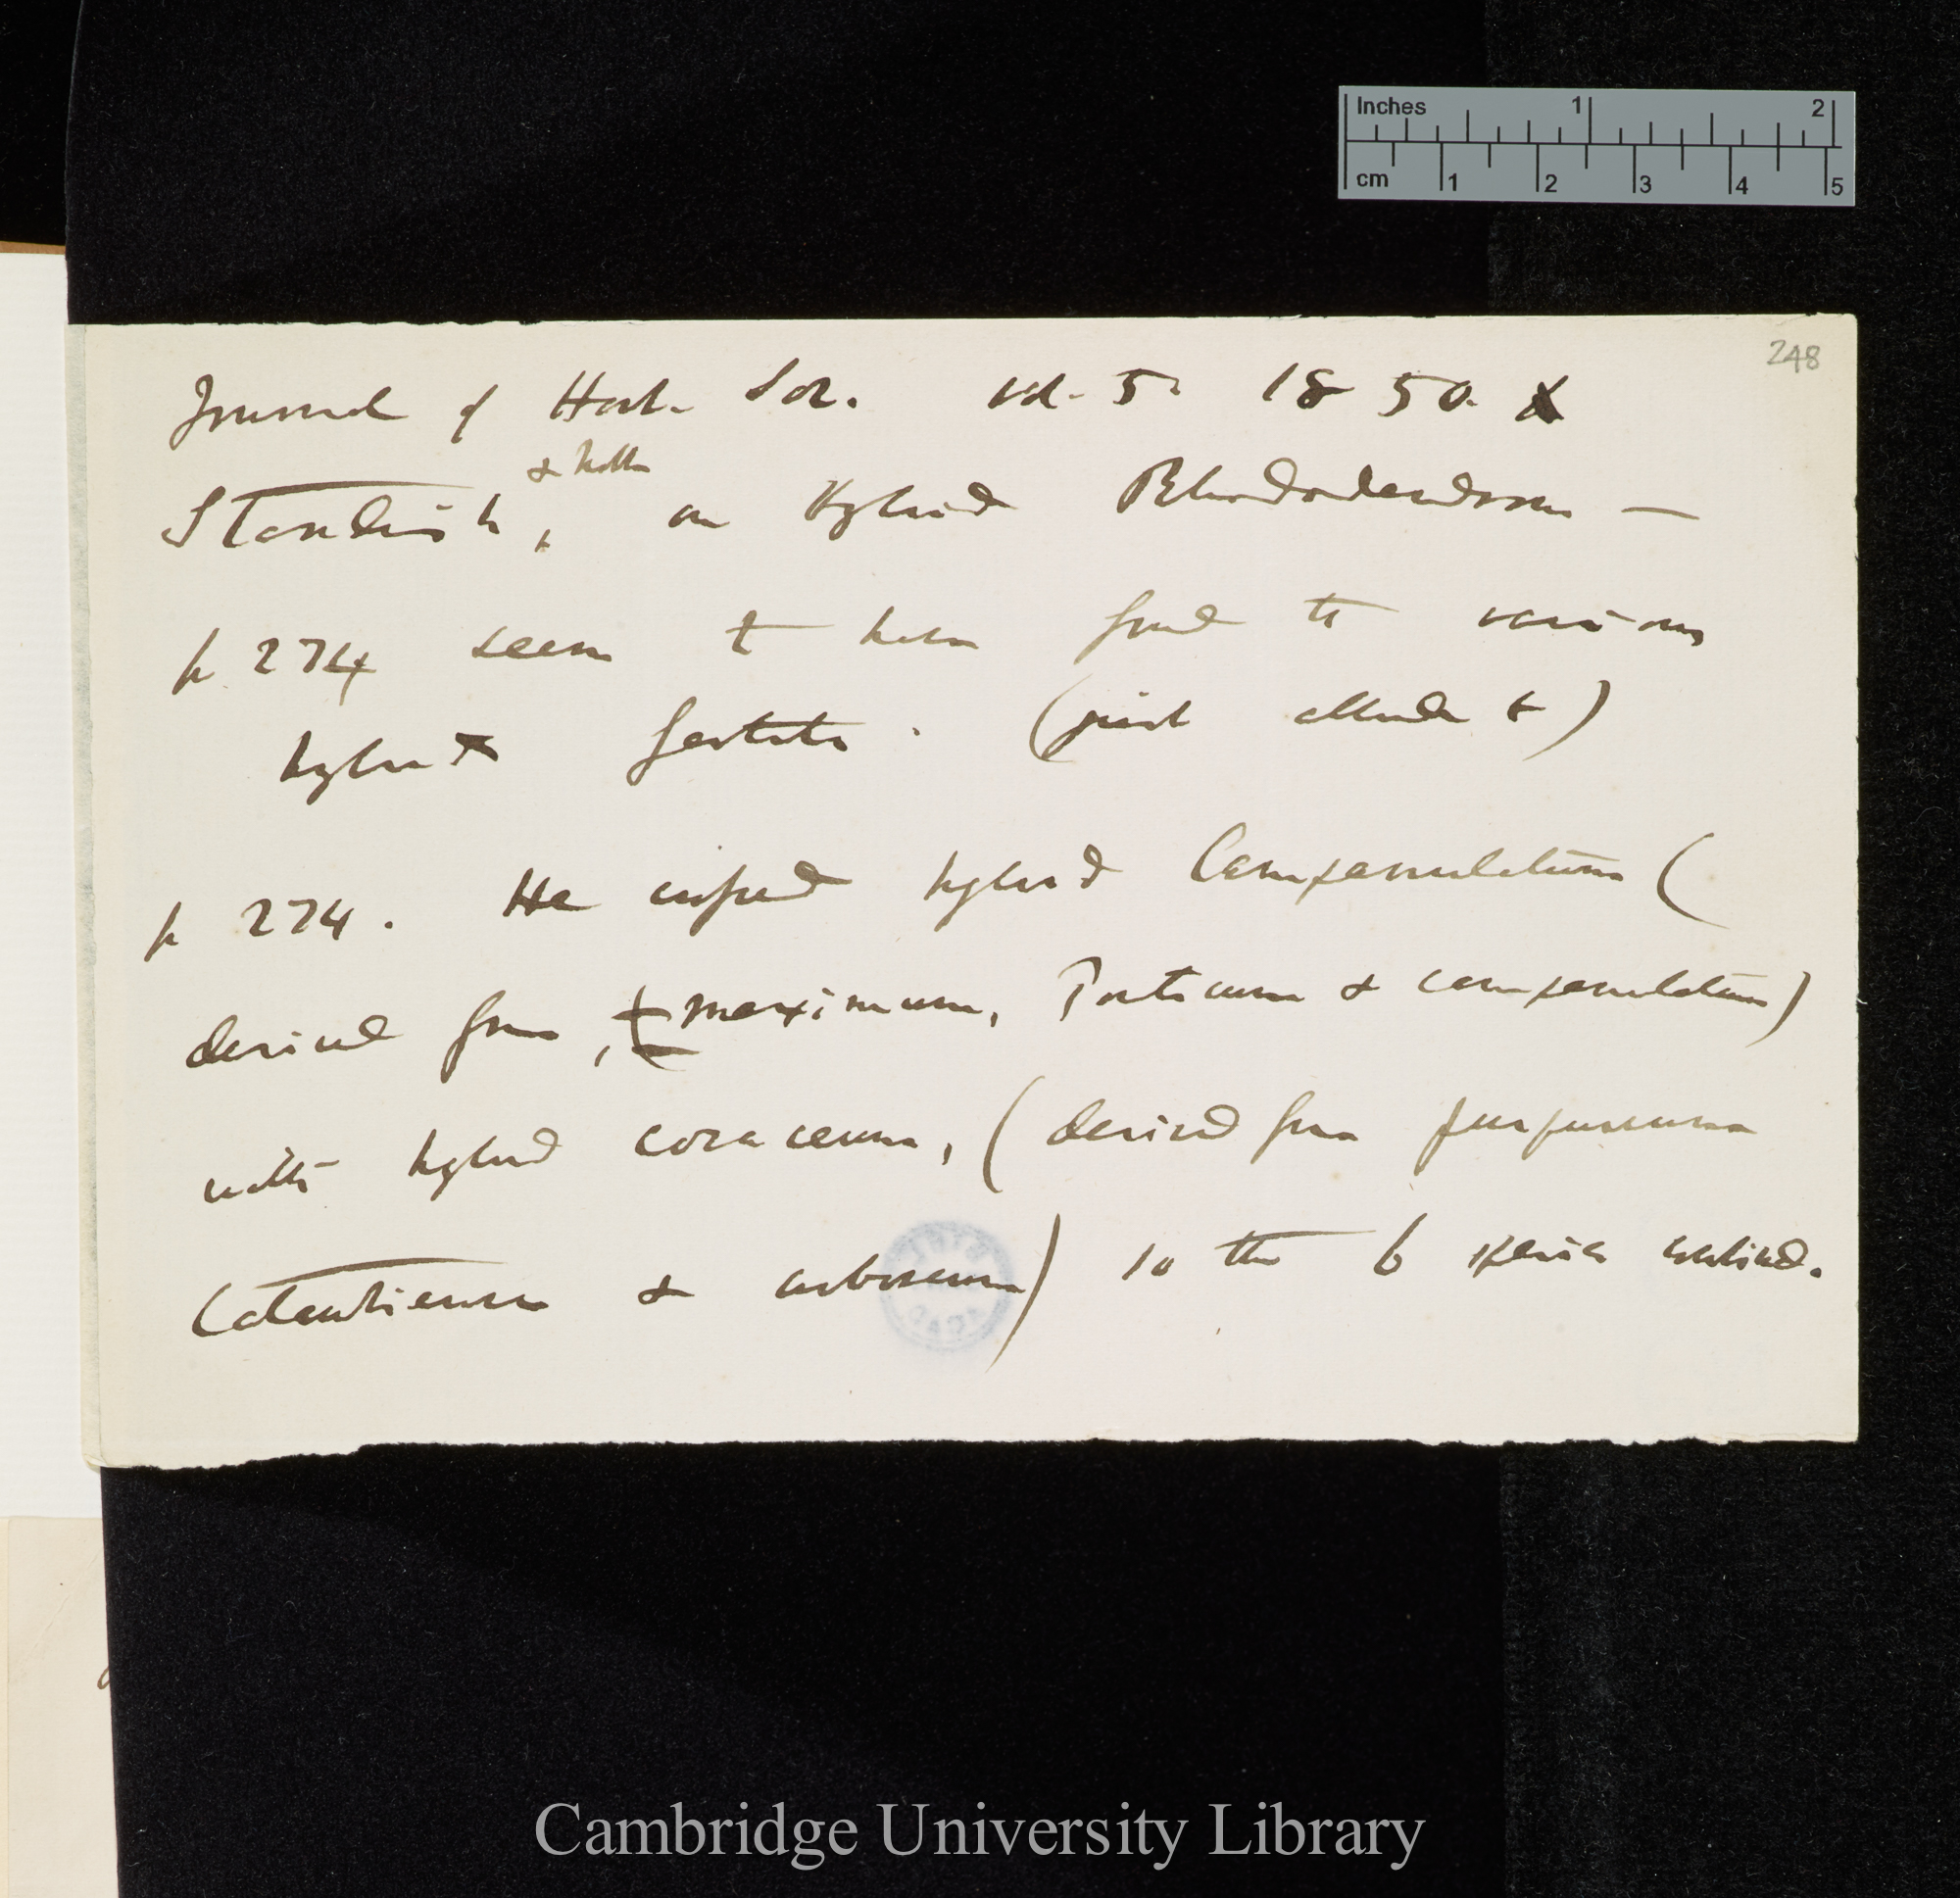 Inches 1 2
cm 1 2 3 4 5
248
Journal of Hort. Soc. vol. 5. 1850.
& Noble
Standish, on Hybrid Rhododendrons —
p 274 seem to have found the various
hybrids fertile. (just allude to)
p 274. He crossed hybrid Campanulatum (
derived from, maximum, Ponticum & campanulatum)
with hybrid coraceum, (derived from purpureum
Catawbiense & arboreum) so that 6 species entered.
Cambridge University Library